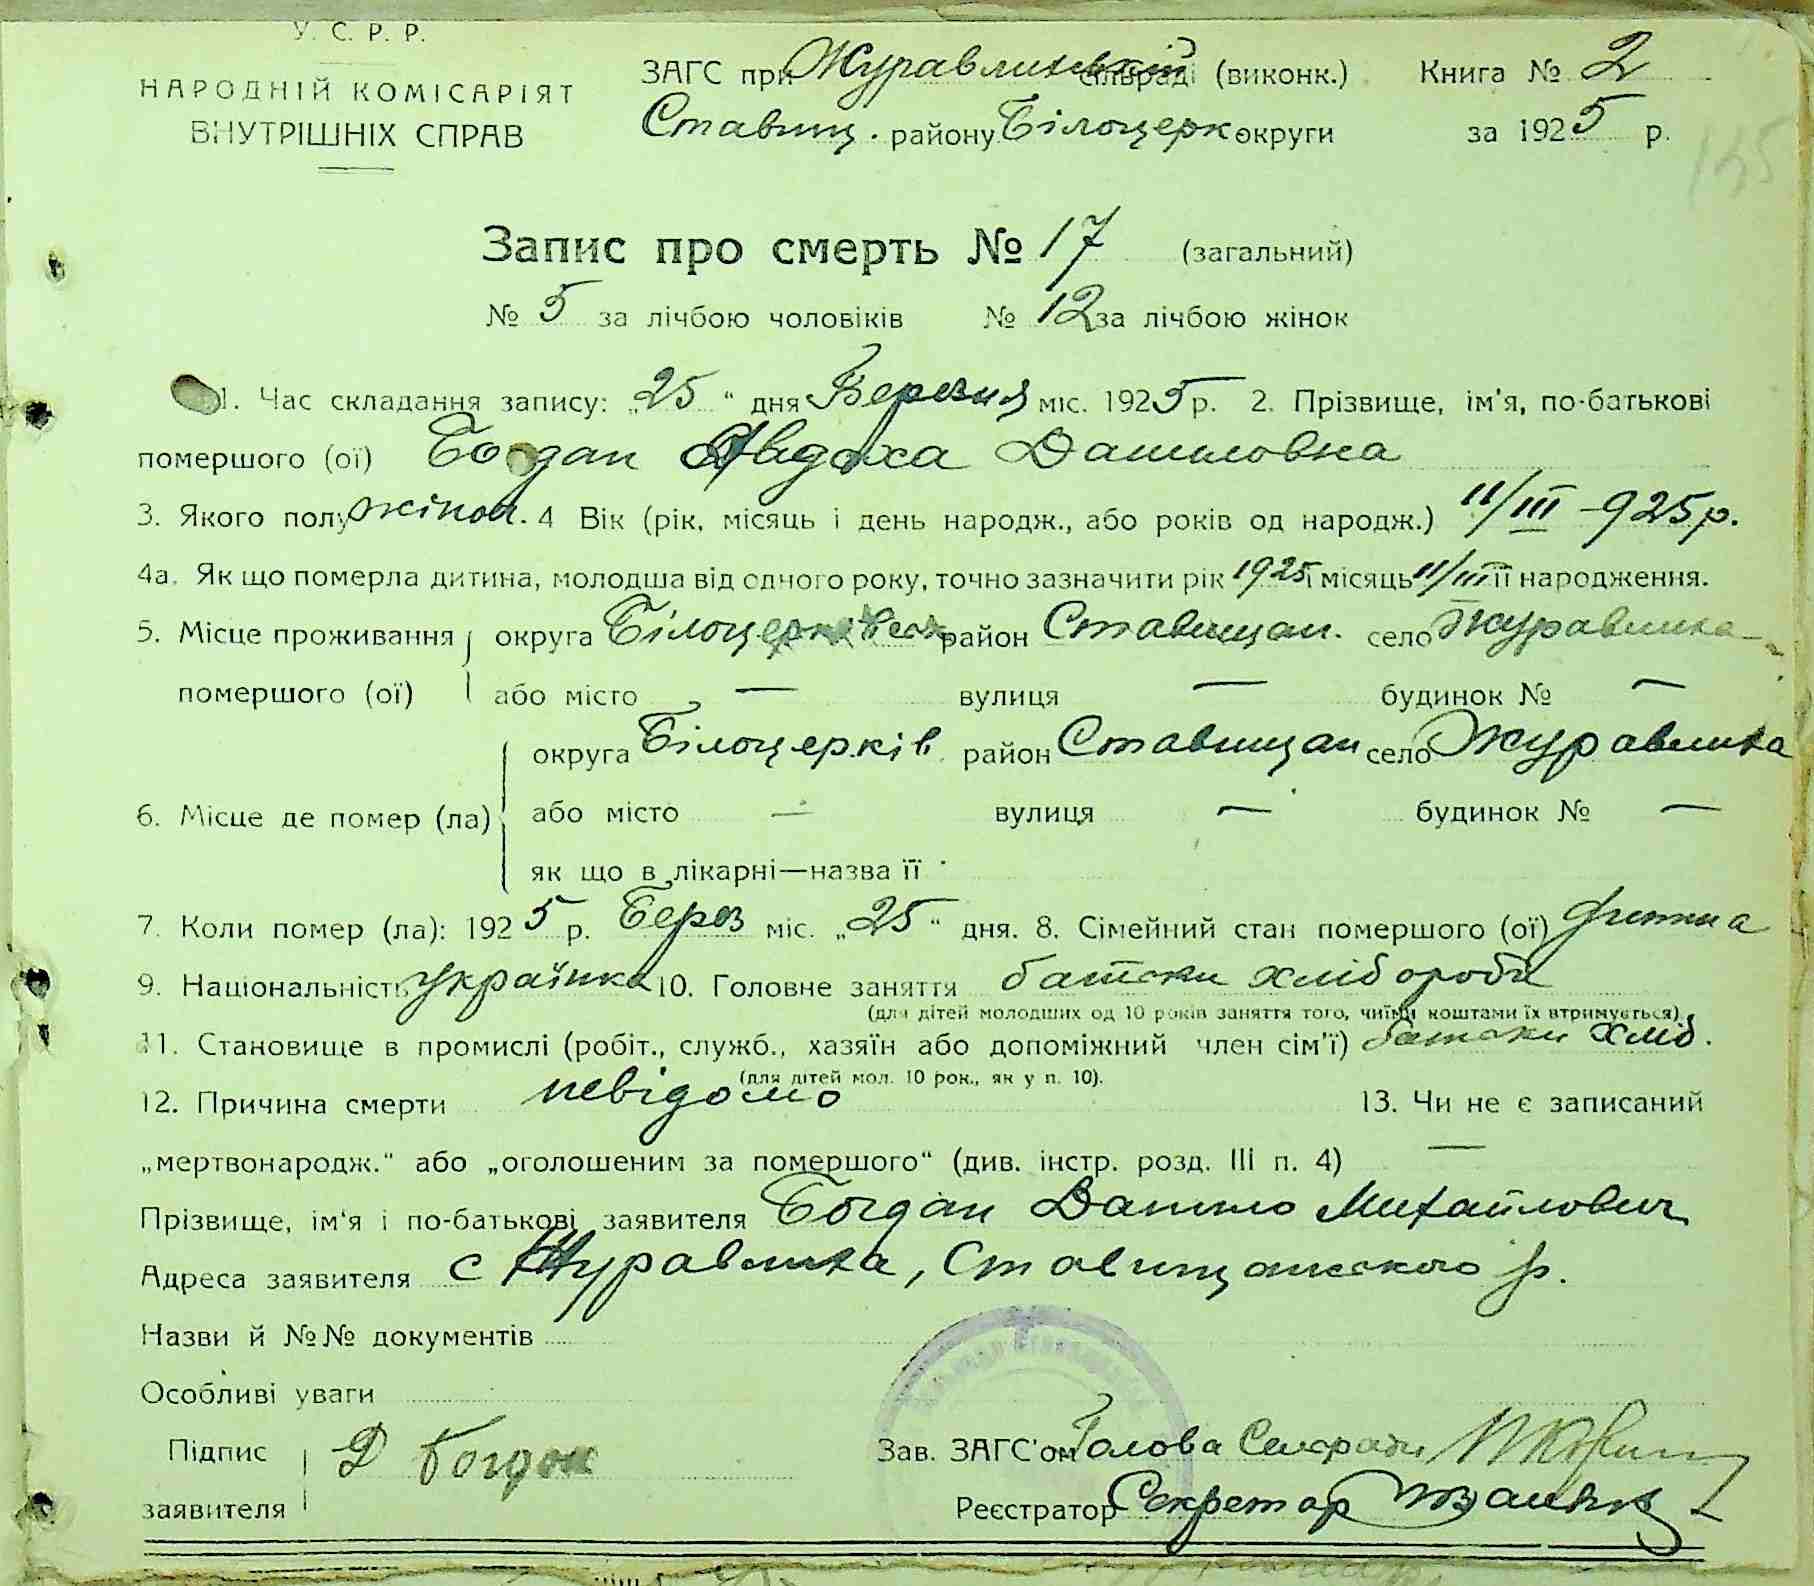 У. С. Р. Р.
НАРОДНІЙ КОМІСАРІЯТ
ВНУТРІШНІХ СПРАВ
ЗАГС при Журавлинській сільраді (виконк.) Книга № 2
Ставищ. району Білоцерк округи за 1925 р.
135
Запис про смерть № 17 (загальний)
№ 5 за лічбою чоловіків № 12 за лічбою жінок
1. Час складання запису: „25“ дня Березня міс. 1925 р. 2. Прізвище, ім'я, по-батькові
помершого (ої) Богдан Явдоха Даниловна
3. Якого полу жіноч. 4 Вік (рік, місяць і день народж., або років од народж.) 11/III -925 р.
4а. Як що померла дитина, молодша від одного року, точно зазначити рік 1925 і місяць 11/III її народження.
5. Місце проживання округа Білоцерківськ район Ставищан. село Журавлиха
помершого (ої) або місто — вулиця — будинок № —
округа Білоцерків район Ставищан село Журавлиха
6. Місце де помер (ла) або місто — вулиця — будинок № —
як що в лікарні—назва її
7. Коли помер (ла): 1925 р. Берез міс. „25“ дня. 8. Сімейний стан помершого (ої) дитина
9. Національність українка 10. Головне заняття батьки хлібороби
(для дітей молодших од 10 років заняття того, чиїми коштами їх втримується)
11. Становище в промислі (робіт., служб., хазяїн або допоміжний член сім'ї) батьки хліб.
(для дітей мол. 10 рок., як у п. 10).
12. Причина смерти невідомо 13. Чи не є записаний
„мертвонародж.“ або „оголошеним за помершого“ (див. інстр. розд. III п. 4) —
Прізвище, ім'я і по-батькові заявителя Богдан Данило Михайлович
Адреса заявителя с Журавлиха, Ставищанського р.
Назви й №№ документів
Особливі уваги
Підпис Д Богдан Зав. ЗАГС'ом Голова Сельради
заявителя Реєстратор Секретар